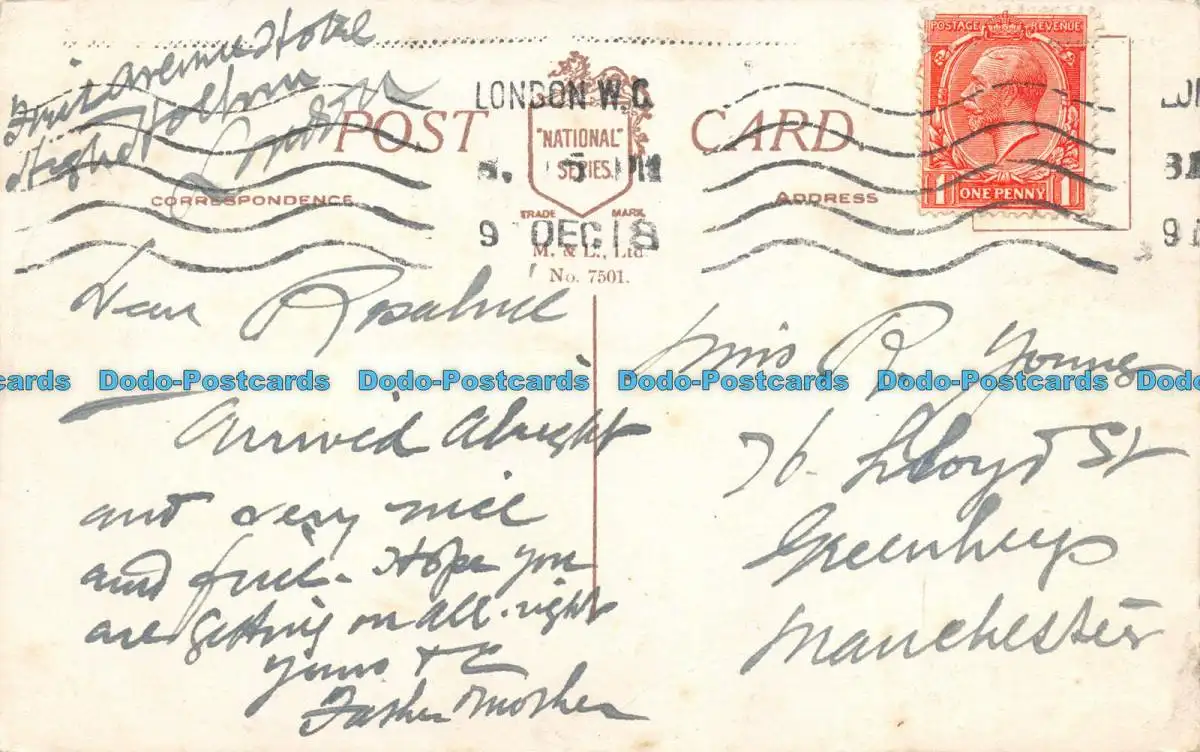 First Avenue Hotel
High Holborn
London
POST CARD
"NATIONAL"
SERIES.
TRADE MARK
M. & L., Ltd
No. 7501.
CORRESPONDENCE
ADDRESS
POSTAGE REVENUE
1 ONE PENNY 1
LONDON W.C.
5 PM
9 DEC 18
Dear Rosalind
Arrived Alright
and very nice
and fine. Hope you
are getting on all right
yours & C
Father Mother
Miss R Young
76 Lloyd St
Greenheys
Manchester
Dodo-Postcards Dodo-Postcards Dodo-Postcards Dodo-Postcards